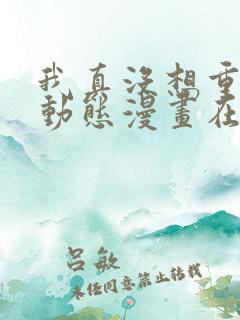 我真没想重
動態漫畫在
吕敏
未经同意禁止转载